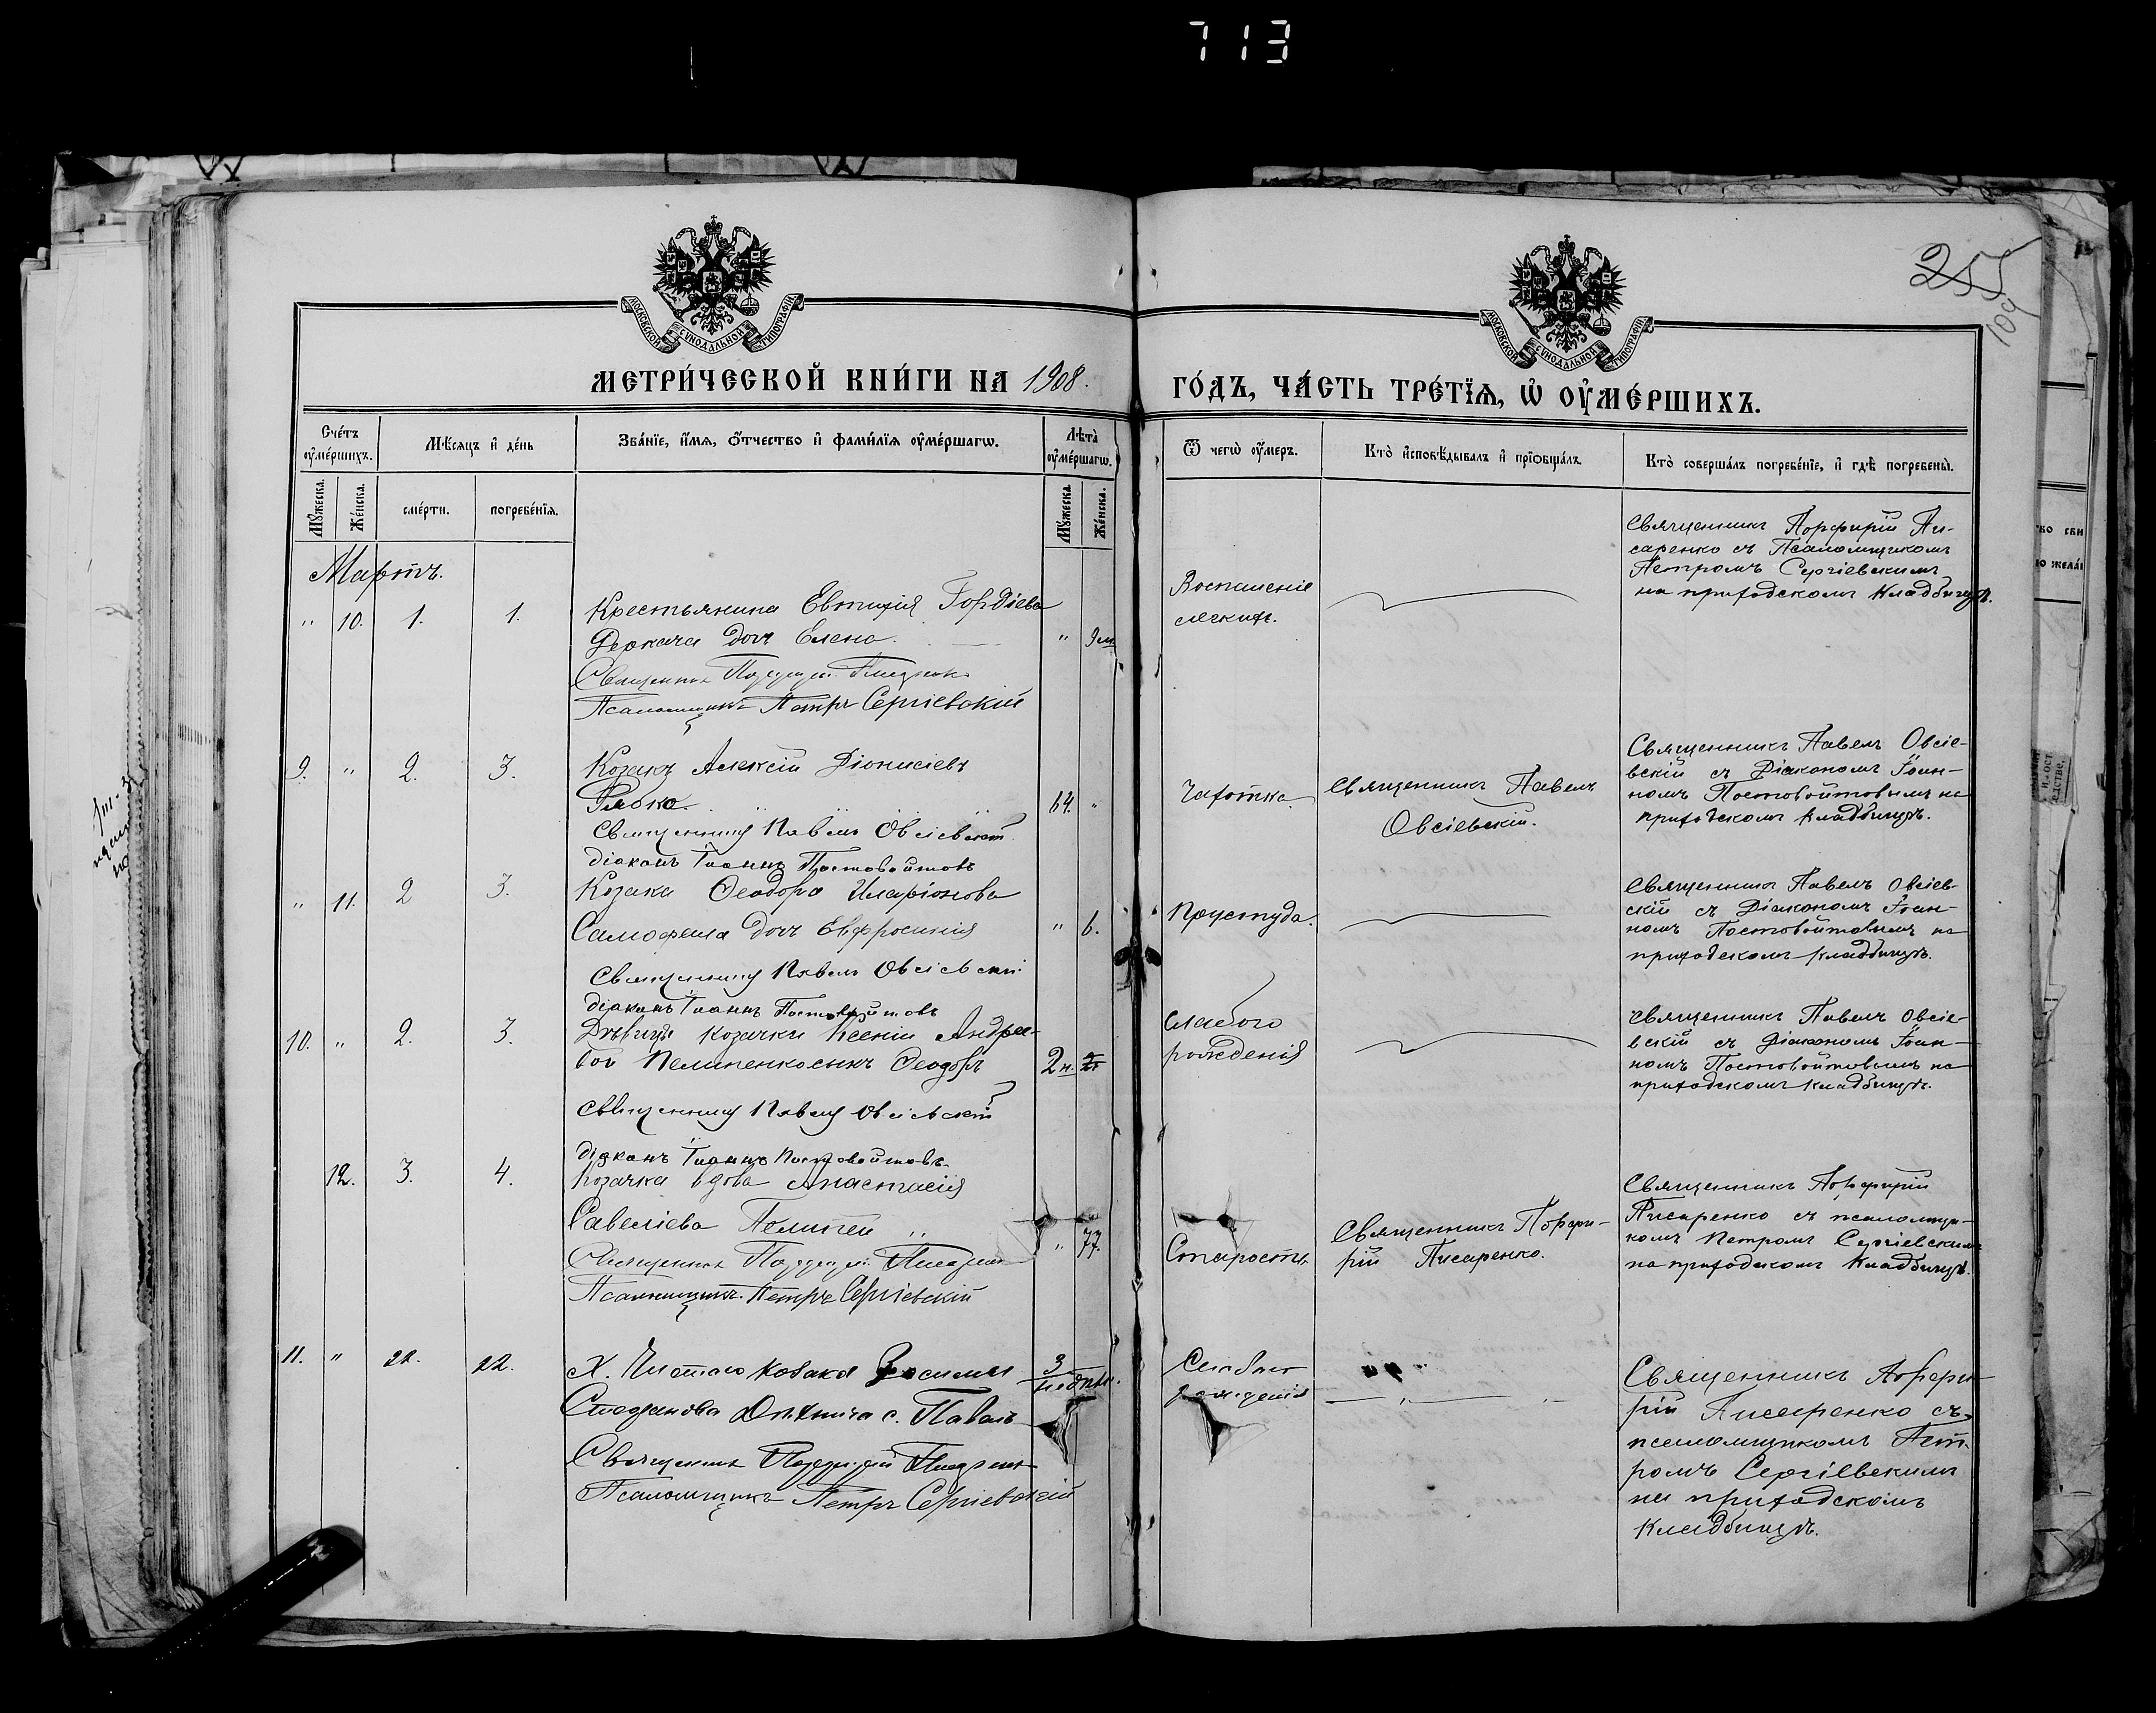 713
МОСКОВСКОЙ СУНОДАЛЬНОЙ ТИПОГРАФІИ
МОСКОВСКОЙ СУНОДАЛЬНОЙ ТИПОГРАФІИ
255
109
МЕТРИ́ЧЕСКОЙ КНИ́ГИ НА 1908.
ГО́ДЪ, ЧА́СТЬ ТРЕ́ТЇѦ, Ѡ҆ ОУ҆МЕ́РШИХЪ.
Сче́тъ оу҆ме́ршихъ.
Мѣ́сяцъ и҆ де́нь
Зва́нїе, и҆́мѧ, ѻ҆́тчество и҆ фами́лїѧ оу҆ме́ршагѡ.
Лѣта̀ оу҆ме́ршагѡ.
Ѿ чегѡ̀ оу҆́меръ.
Кто̀ и҆сповѣ́дывалъ и҆ прїѻбща́лъ.
Кто̀ соверша́лъ погребе́нїе, и҆ гдѣ̀ погребены̀.
Му́жеска.
Же́нска.
сме́рти.
погребе́нїѧ.
Му́жеска.
Же́нска.
Мартъ.
" 10. 1. 1.
Крестьянина Евтихія Гордіева
Деркача дочь Елена.
" 9 м
Священникъ Порфирій Писаренко
Псаломщикъ Петръ Сергіевскій
Воспаленіе
легкихъ.
Священникъ Порфирій Пи-
саренко съ Псаломщикомъ
Петромъ Сергіевскимъ
на приходскомъ кладбищѣ.
9. " 2. 3.
Козакъ Алексій Діонисіевъ
Рябко
64. "
Священникъ Павелъ Овсіевскій
діаконъ Іоаннъ Постовойтовъ
Чахотка.
Священникъ Павелъ
Овсіевскій.
Священникъ Павелъ Овсіе-
вскій съ Діакономъ Іоан-
номъ Постовойтовымъ на
приходскомъ кладбищѣ.
" 11. 2 3.
Козака Ѳеодора Иларіонова
дочь Евфросинія
" 6.
Священникъ Павелъ Овсіевскій
діаконъ Іоаннъ Постовойтовъ
Простуда.
Священникъ Павелъ Овсіев-
скій съ Діакономъ Іоан-
номъ Постовойтовымъ на
приходскомъ кладбищѣ.
10. " 2. 3.
Дѣвицы козачки Ксеніи Андрее-
вой сынъ Ѳеодоръ
2 н.
Священникъ Павелъ Овсіевскій
діаконъ Іоаннъ Постовойтовъ.
Слабого
рожденія
Священникъ Павелъ Овсіе-
вскій съ Діакономъ Іоан-
номъ Постовойтовымъ на
приходскомъ кладбищѣ.
12. 3. 4.
Козачка вдова Анастасія
Савеліева "
" 77.
Священникъ Порфирій Писаренко
Псаломщикъ Петръ Сергіевскій
Старость
Священникъ Порфи-
рій Писаренко.
Священникъ Порфирій
Писаренко съ псаломщи-
комъ Петромъ Сергіевскимъ
на приходскомъ кладбищѣ.
11. " 22. 22.
Х. козака Зосимы
Стефанова с. Павелъ
3
недѣли.
Священникъ Порфирій Писаренко
Псаломщикъ Петръ Сергіевскій
Слабаго
рожденія
— " — " —
Священникъ Порфи-
рій Писаренко съ
псаломщикомъ Пет-
ромъ Сергіевскимъ
на приходскомъ
кладбищѣ.